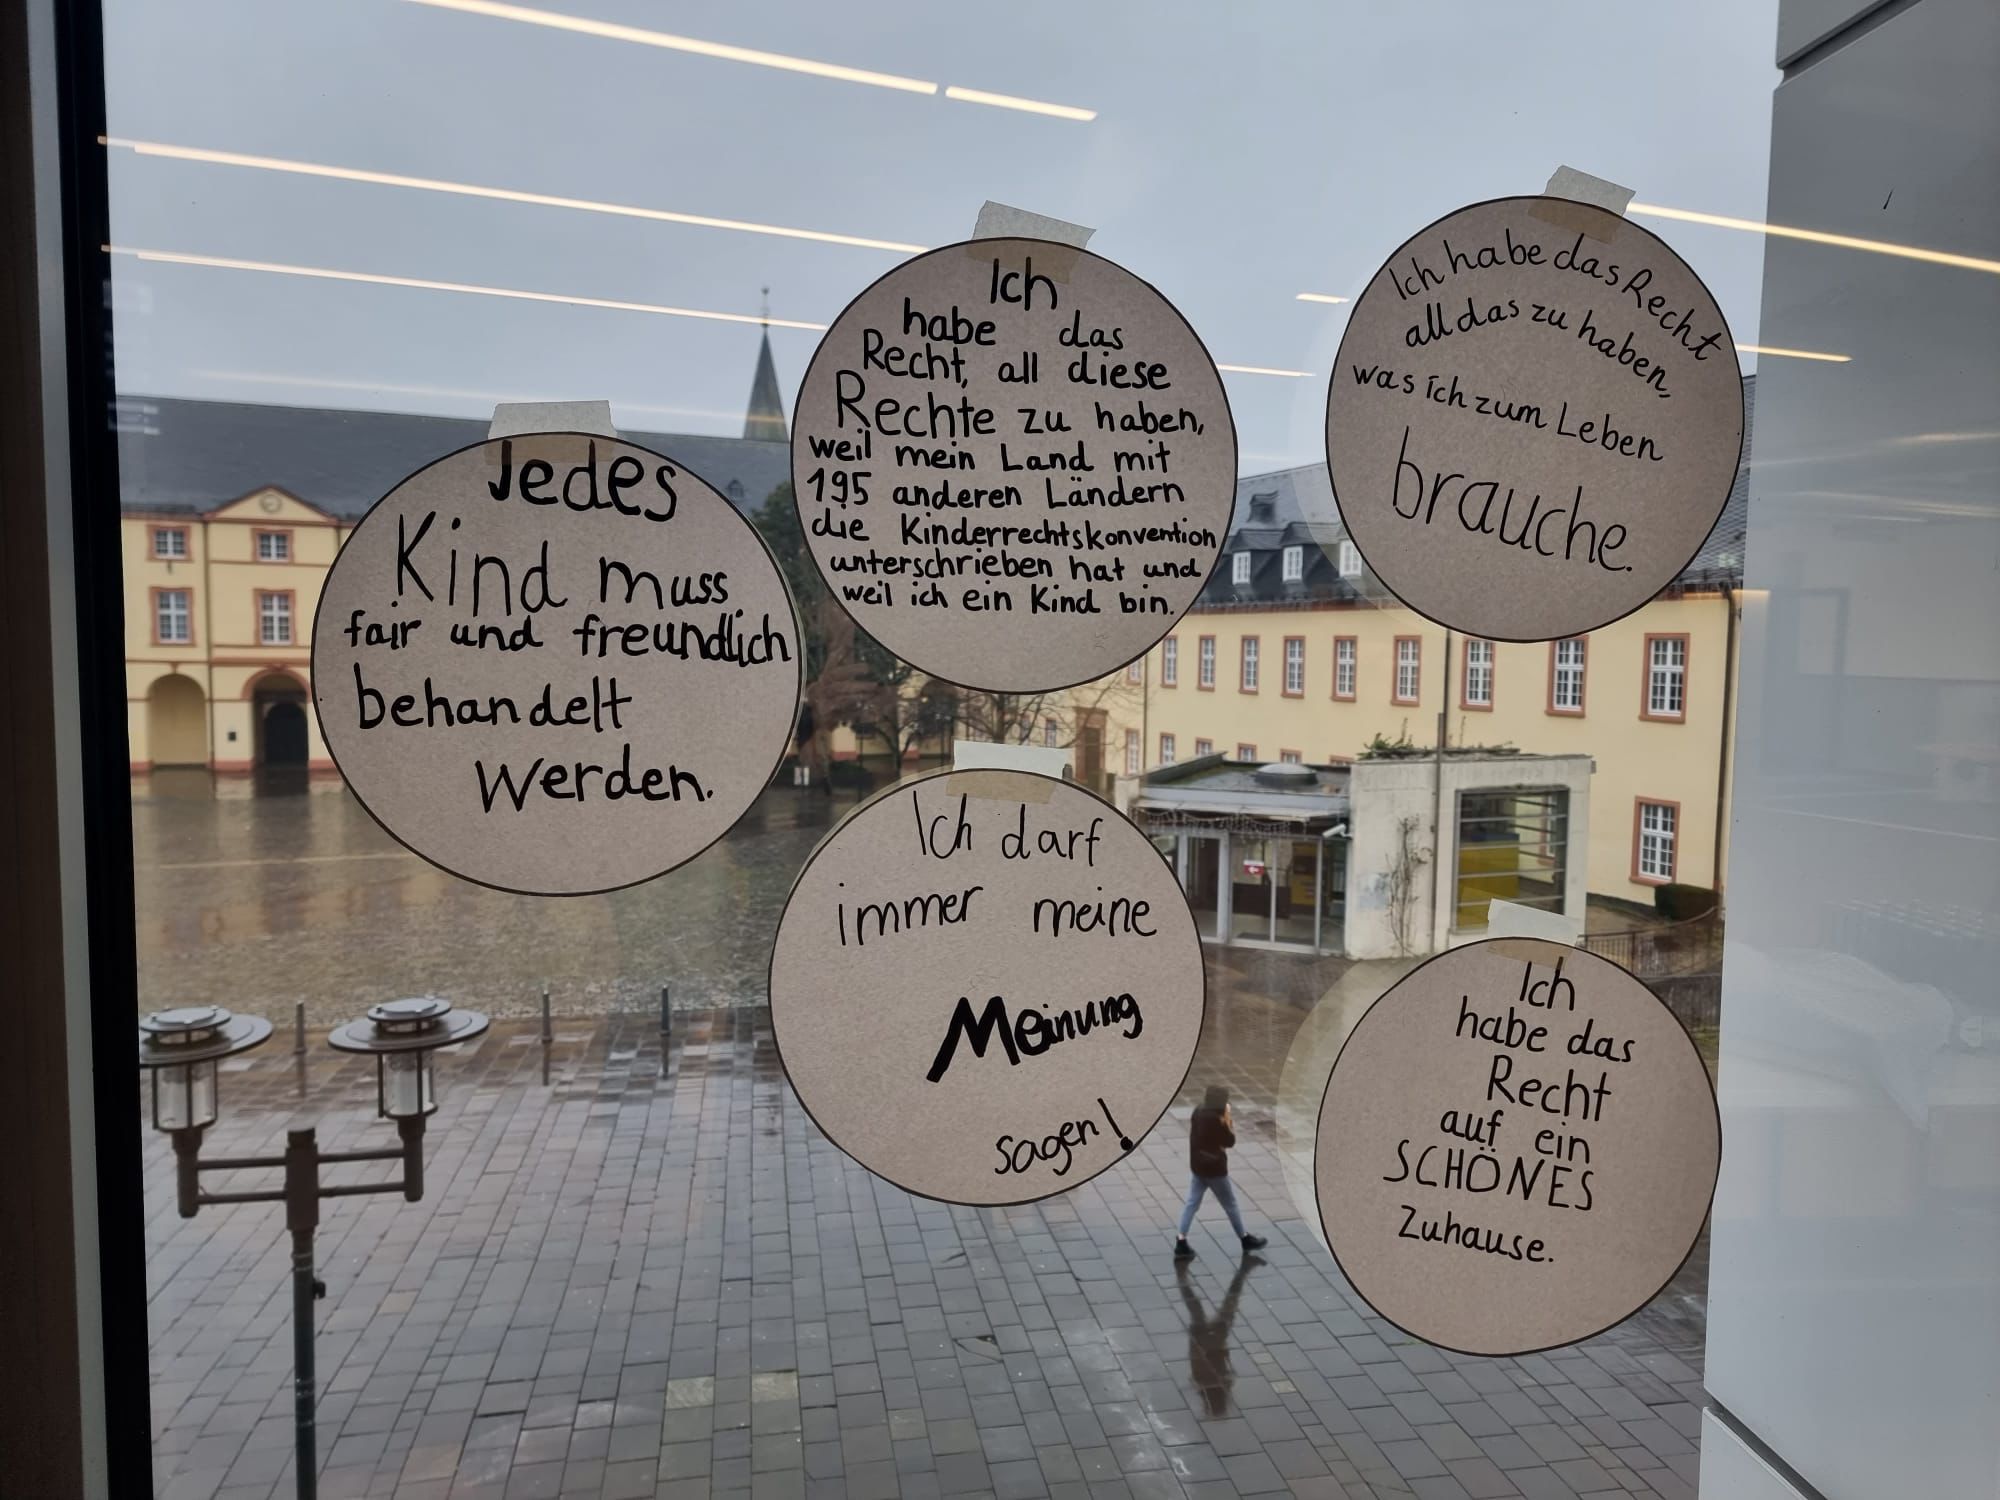 Jedes
Kind muss
fair und freundlich
behandelt
werden.
Ich
habe das
Recht, all diese
Rechte zu haben,
weil mein Land mit
195 anderen Ländern
die Kinderrechtskonvention
unterschrieben hat und
weil ich ein Kind bin.
Ich habe das Recht
all das zu haben,
was ich zum Leben
brauche.
Ich darf
immer meine
Meinung
sagen!
Ich
habe das
Recht
auf ein
SCHÖNES
Zuhause.